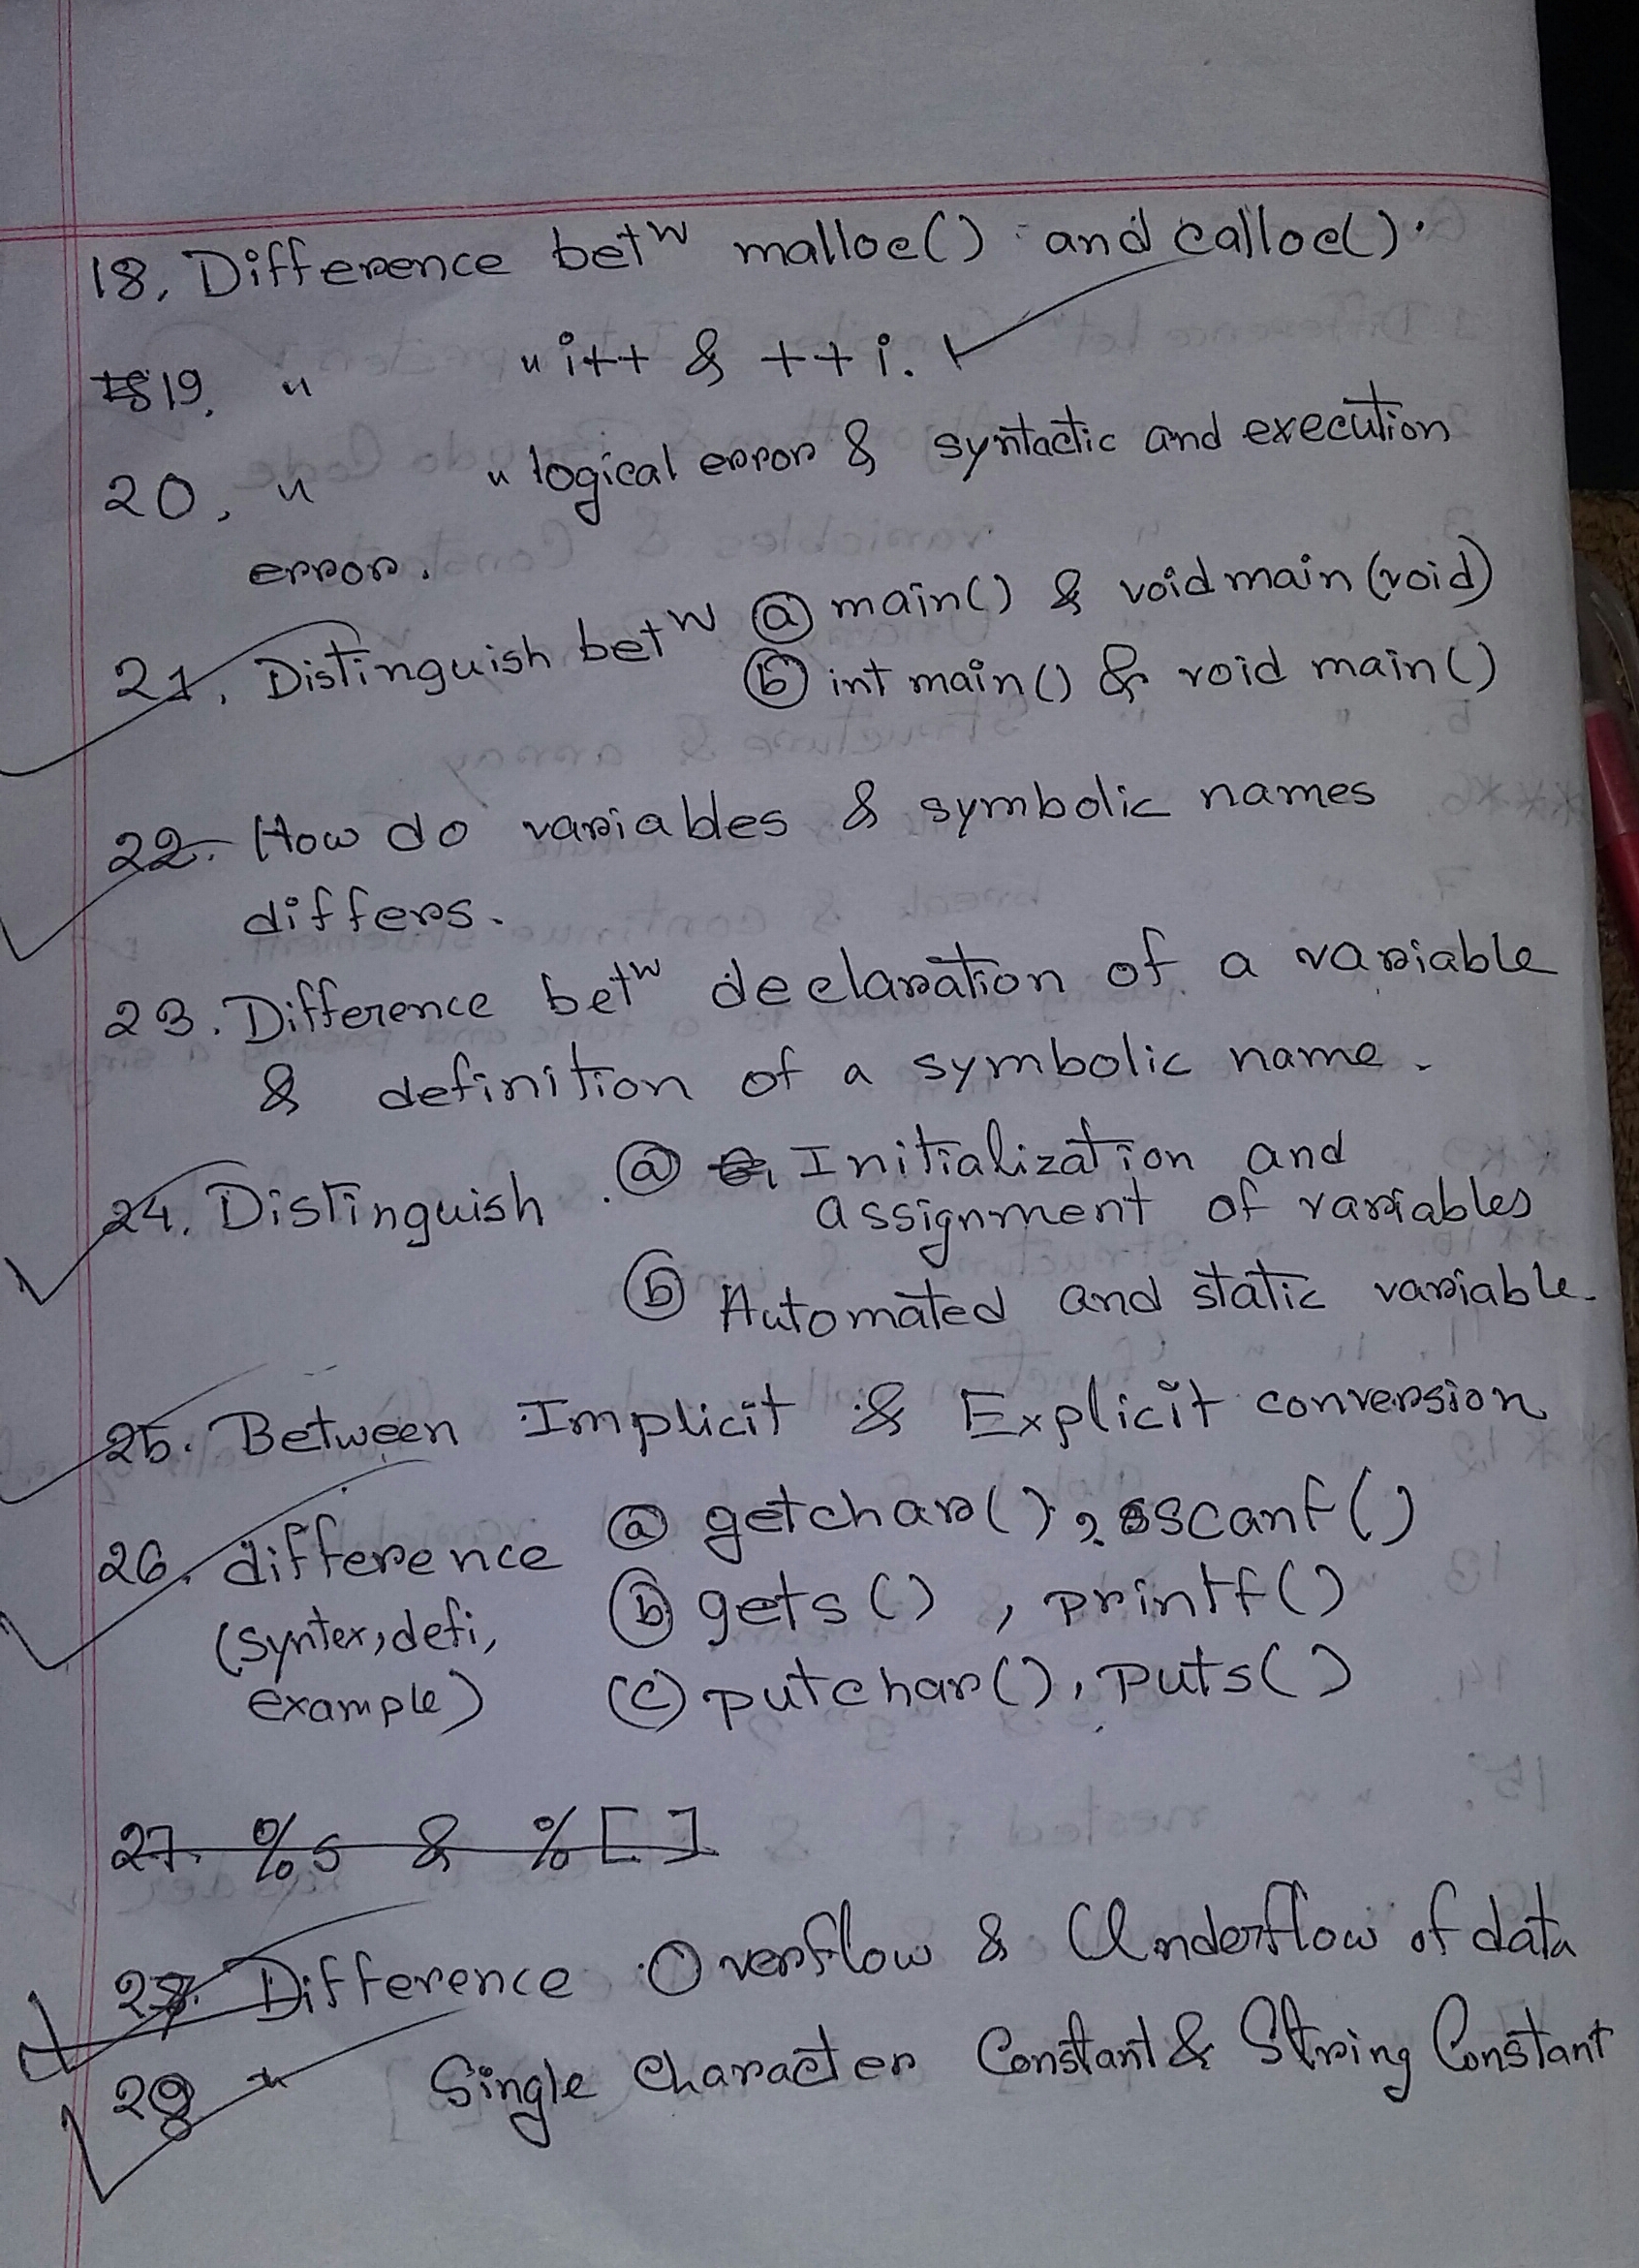 18, Difference betw malloc() and calloc().
19. " " i++ & ++i.
20, " " logical error & syntactic and execution
error.
21. Distinguish betw ⓐ main() & void main (void)
ⓑ int main() & void main()
22. How do variables & symbolic names
differs.
23. Difference betw declaration of a variable
& definition of a symbolic name.
24. Distinguish ⓐ Initialization and
assignment of variables
ⓑ Automated and static variable.
25. Between Implicit & Explicit conversion
26. difference ⓐ getchar(), sscanf()
(syntex, defi, ⓑ gets() , printf()
example) (c) putchar(), puts()
27. %s & %[ ]
Difference Overflow & Underflow of data
" Single Character Constant & String Constant